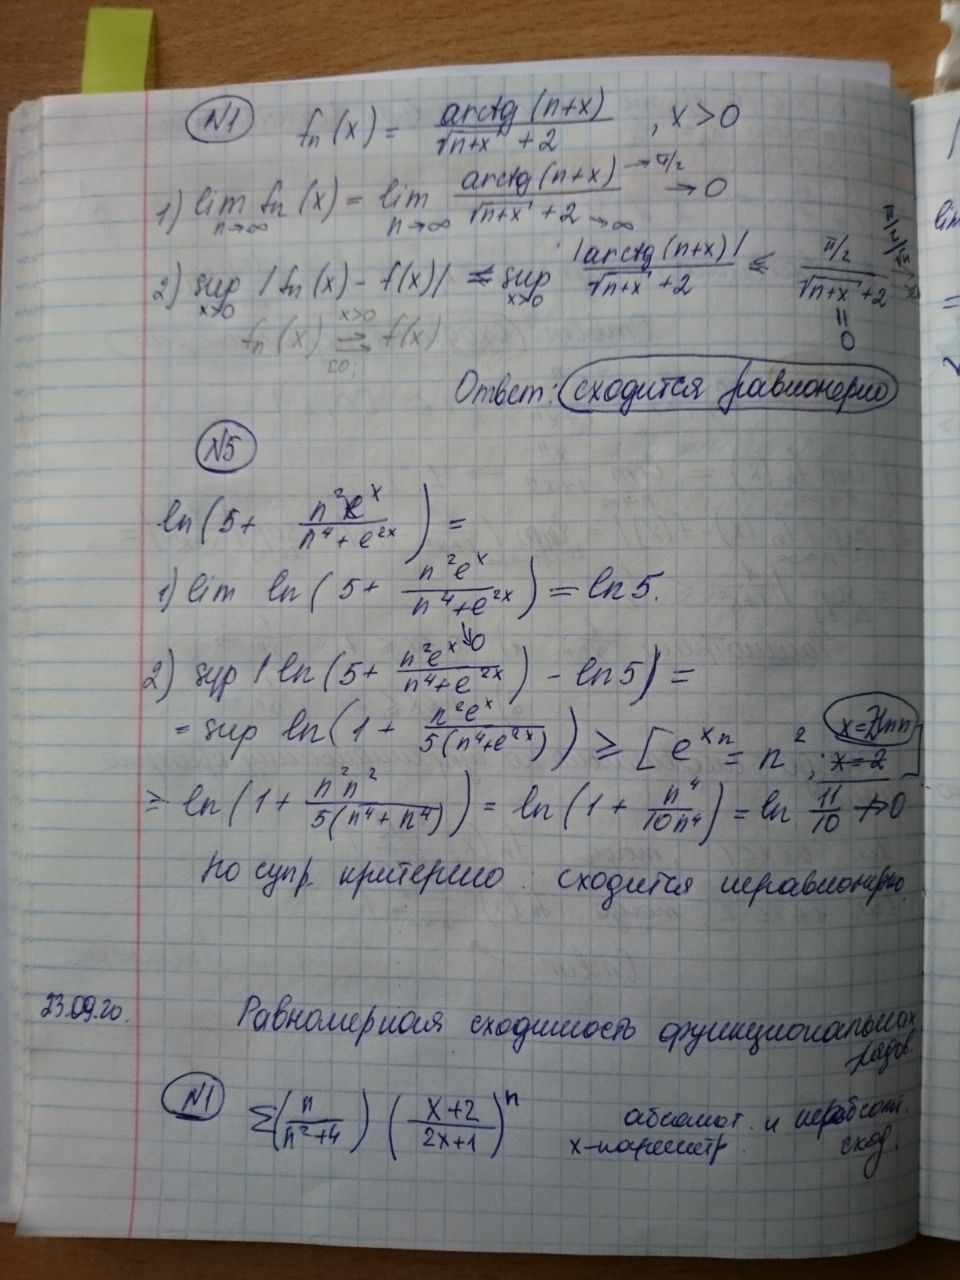 №1 fn(x) = arctg(n+x) / √n+x + 2 , x>0
1) lim n→∞ fn(x) = lim n→∞ arctg(n+x) →π/2 / √n+x + 2 →∞ → 0
2) sup x>0 |fn(x) - f(x)| ≤ sup x>0 |arctg(n+x)| / √n+x + 2 ≤ π/2 / √n+x + 2 = 0
fn(x) x>0 → f(x)
Ответ: сходится равномерно
№5
ln(5 + n²e^x / n⁴+e^2x) =
1) lim ln(5 + n²e^x / n⁴+e^2x) = ln5.
↓0
2) sup |ln(5 + n²e^x / n⁴+e^2x) - ln5| =
= sup ln(1 + n²e^x / 5(n⁴+e^2x)) ≥ [e^xn = n², x=2lnn
≥ ln(1 + n²n² / 5(n⁴+n⁴)) = ln(1 + n⁴ / 10n⁴) = ln 11/10 ↛ 0
По супр. критерию сходится неравномерно.
23.09.20. Равномерная сходимость функциональных
рядов.
№1 Σ(n / n²+4) (x+2 / 2x+1)^n абсолют. и неабсолют.
x-параметр. сход.